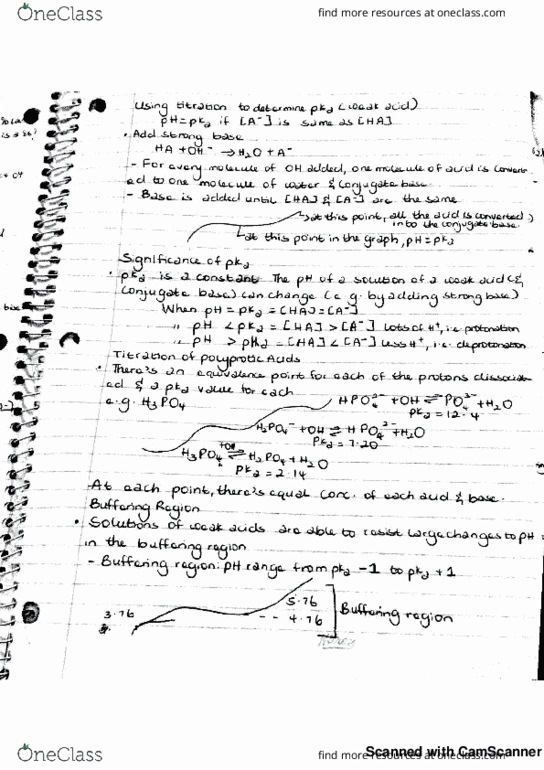 OneClass
find more resources at oneclass.com
Using titration to determine pka (weak acid)
pH=pka if [A⁻] is same as [HA]
• Add strong base
HA + OH⁻ → H₂O + A⁻
- For every molecule of OH added, one molecule of acid is convert
ed to one molecule of water & conjugate base
- Base is added until [HA] & [A⁻] are the same
at this point, all the acid is converted
into the conjugate base
at this point in the graph, pH = pka
Significance of pka
• pka is a constant. The pH of a solution of a weak acid (&
conjugate base) can change (e.g. by adding strong base)
When pH = pka = [HA] = [A⁻]
" pH < pka = [HA] > [A⁻] Lots of H⁺, i.e. protonation
" pH > pka = [HA] < [A⁻] Less H⁺, i.e. deprotonation
Titration of polyprotic Acids
• There's an equivalence point for each of the protons dissociat
ed & a pka value for each
e.g. H₃PO₄
HPO₄²⁻ + OH ⇌ PO₄³⁻ + H₂O
pka = 12.4
H₂PO₄⁻ + OH ⇌ HPO₄²⁻ + H₂O
pka = 7.20
H₃PO₄ +OH ⇌ H₂PO₄ + H₂O
pka = 2.14
- At each point, there's equal conc. of each acid & base.
Buffering Region
• Solutions of weak acids are able to resist large changes to pH
in the buffering region
- Buffering region: pH range from pka -1 to pka +1
5.76
3.76
4.76
Buffering region
Scanned with CamScanner
OneClass
find more resources at oneclass.com